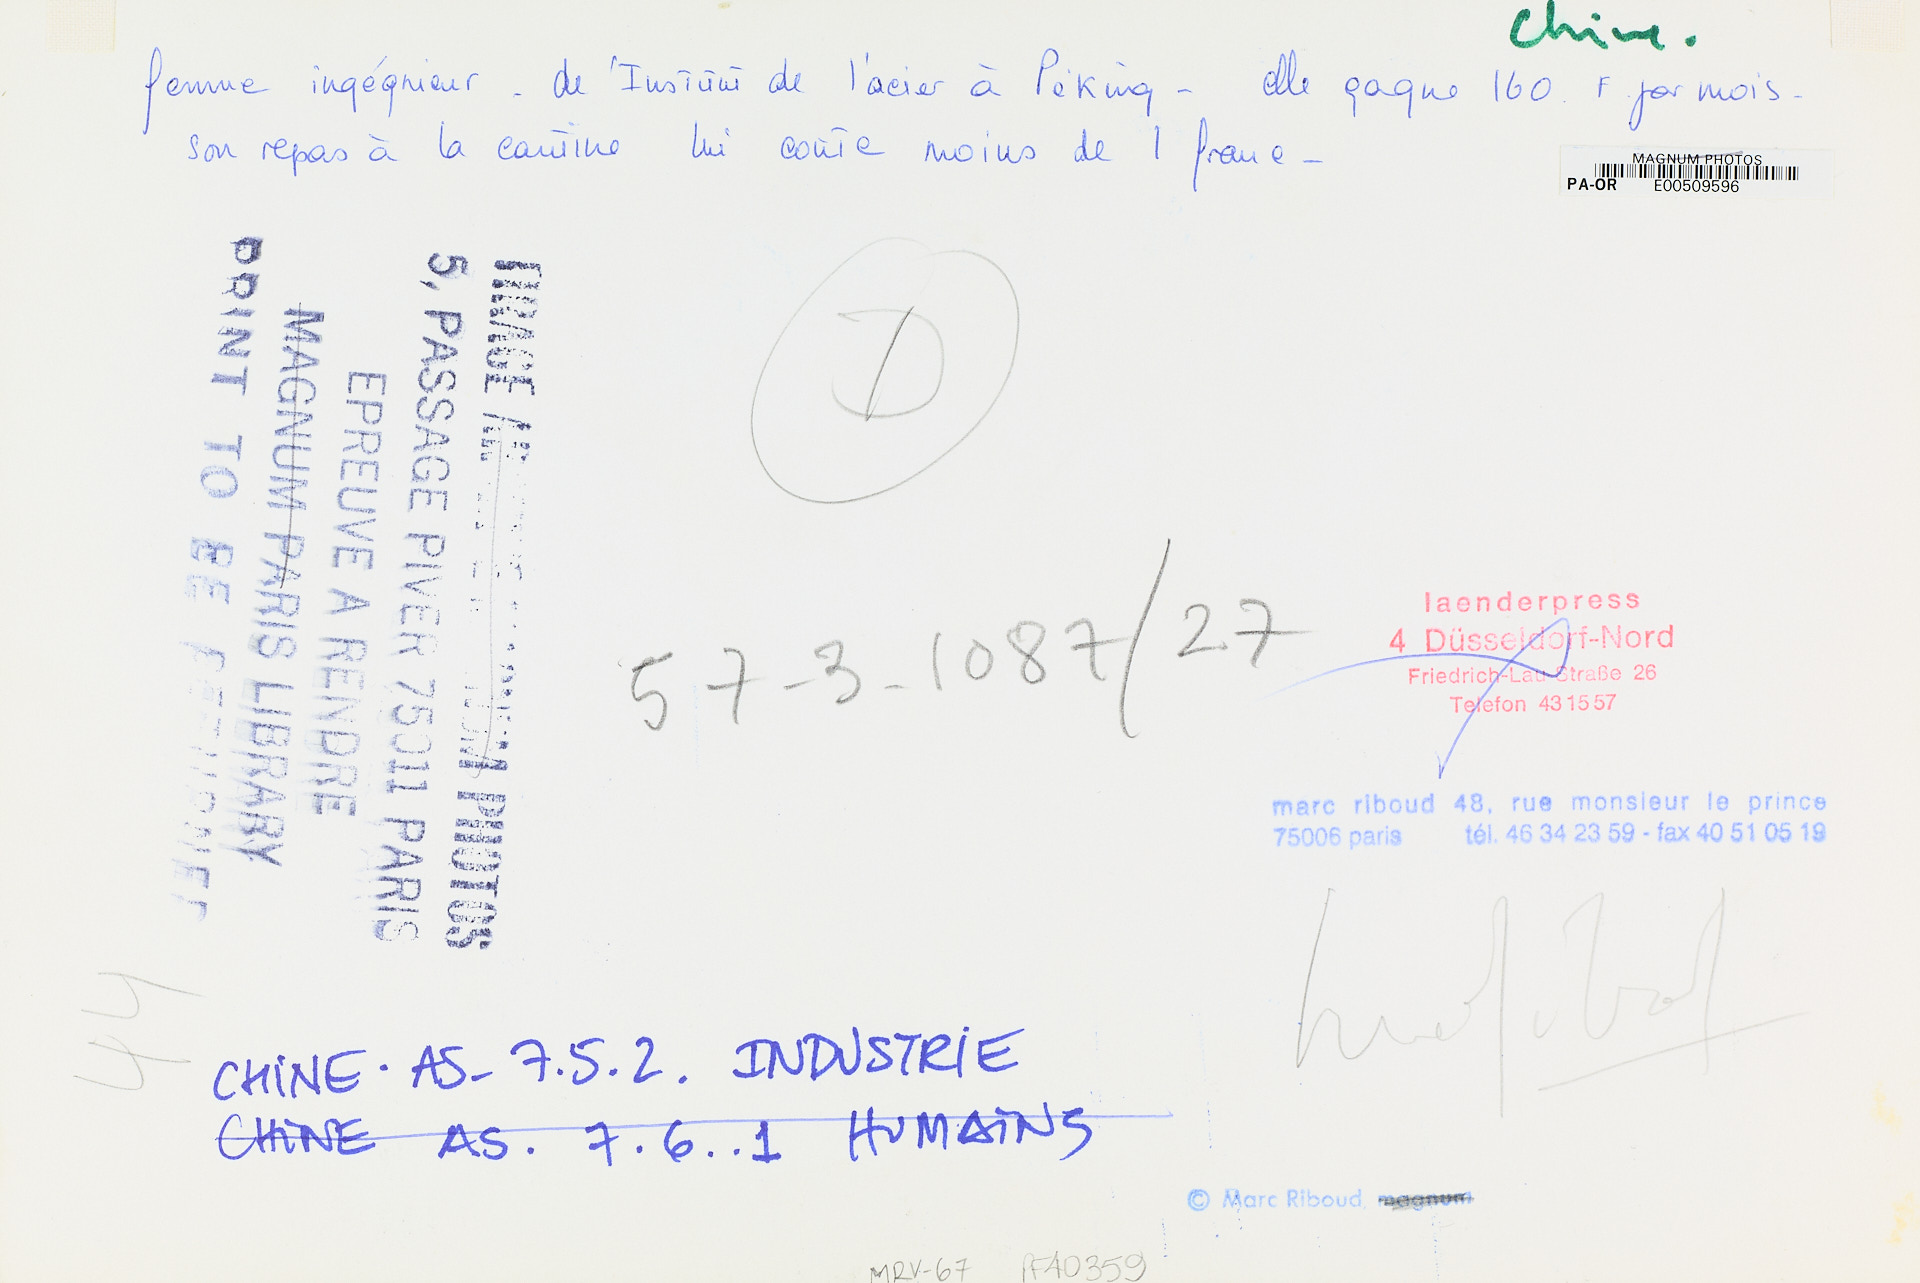 Chine.
femme ingégnieur - de l'Institut de l'acier à Péking - elle gagne 160 F par mois -
son repas à la cantine lui coûte moins de 1 franc -
MAGNUM PHOTOS
PA-OR E00509596
TIRAGE PHOTOS
5, PASSAGE PIVER 75011 PARIS
EPREUVE A RENDRE
MAGNUM PARIS LIBRARY
PRINT TO BE RETURNED
D
57-3-1087/27
laenderpress
4 Düsseldorf-Nord
Friedrich-Lau-Straße 26
Telefon 431557
marc riboud 48, rue monsieur le prince
75006 paris tél. 46 34 23 59 - fax 40 51 05 19
Marc Riboud
44
CHINE. AS- 7.5.2. INDUSTRIE
CHINE AS. 7.6..1 HUMAINS
© Marc Riboud, magnum
MRV-67 PF40359